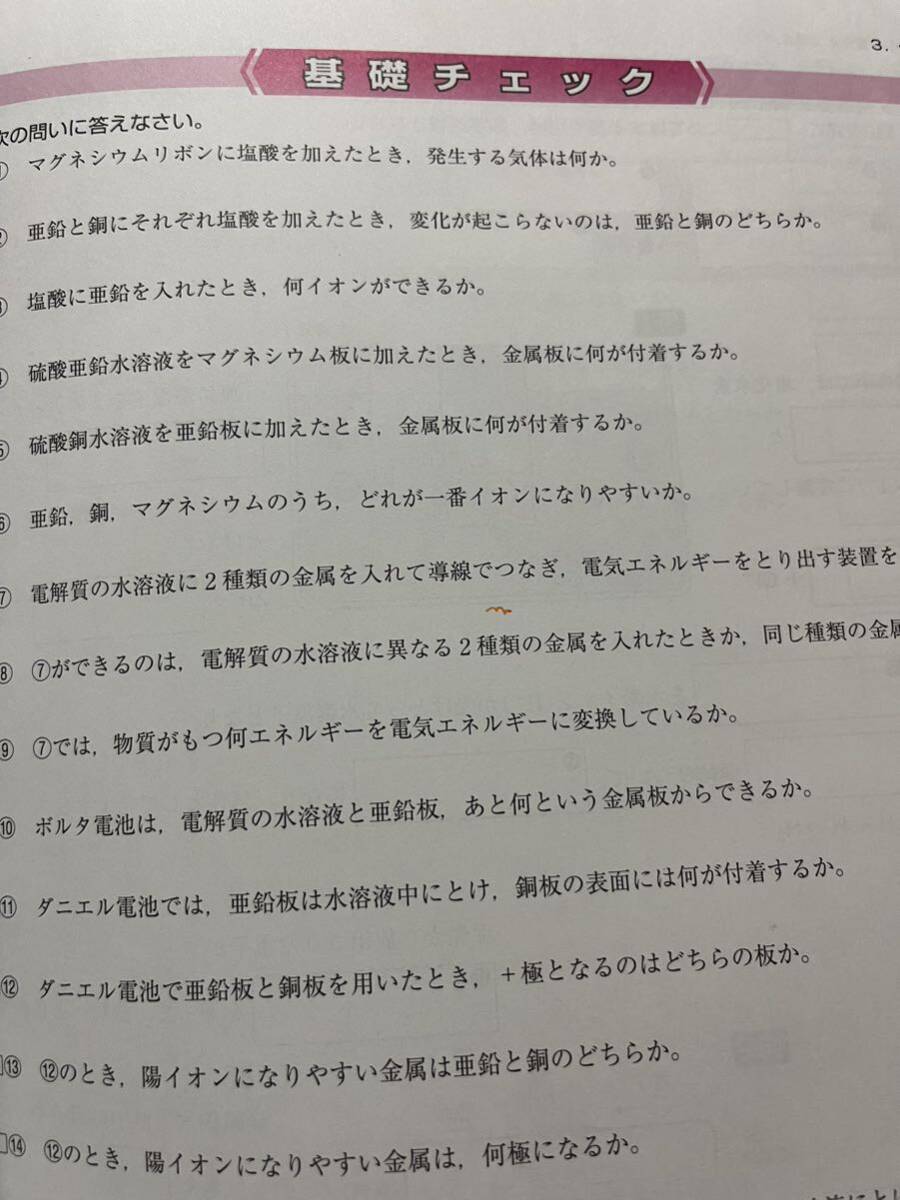 3.
基礎チェック
次の問いに答えなさい。
① マグネシウムリボンに塩酸を加えたとき，発生する気体は何か。
② 亜鉛と銅にそれぞれ塩酸を加えたとき，変化が起こらないのは，亜鉛と銅のどちらか。
③ 塩酸に亜鉛を入れたとき，何イオンができるか。
④ 硫酸亜鉛水溶液をマグネシウム板に加えたとき，金属板に何が付着するか。
⑤ 硫酸銅水溶液を亜鉛板に加えたとき，金属板に何が付着するか。
⑥ 亜鉛，銅，マグネシウムのうち，どれが一番イオンになりやすいか。
⑦ 電解質の水溶液に2種類の金属を入れて導線でつなぎ，電気エネルギーをとり出す装置を
⑧ ⑦ができるのは，電解質の水溶液に異なる2種類の金属を入れたときか，同じ種類の金属
⑨ ⑦では，物質がもつ何エネルギーを電気エネルギーに変換しているか。
⑩ ボルタ電池は，電解質の水溶液と亜鉛板，あと何という金属板からできるか。
⑪ ダニエル電池では，亜鉛板は水溶液中にとけ，銅板の表面には何が付着するか。
⑫ ダニエル電池で亜鉛板と銅板を用いたとき，＋極となるのはどちらの板か。
⑬ ⑫のとき，陽イオンになりやすい金属は亜鉛と銅のどちらか。
⑭ ⑫のとき，陽イオンになりやすい金属は，何極になるか。